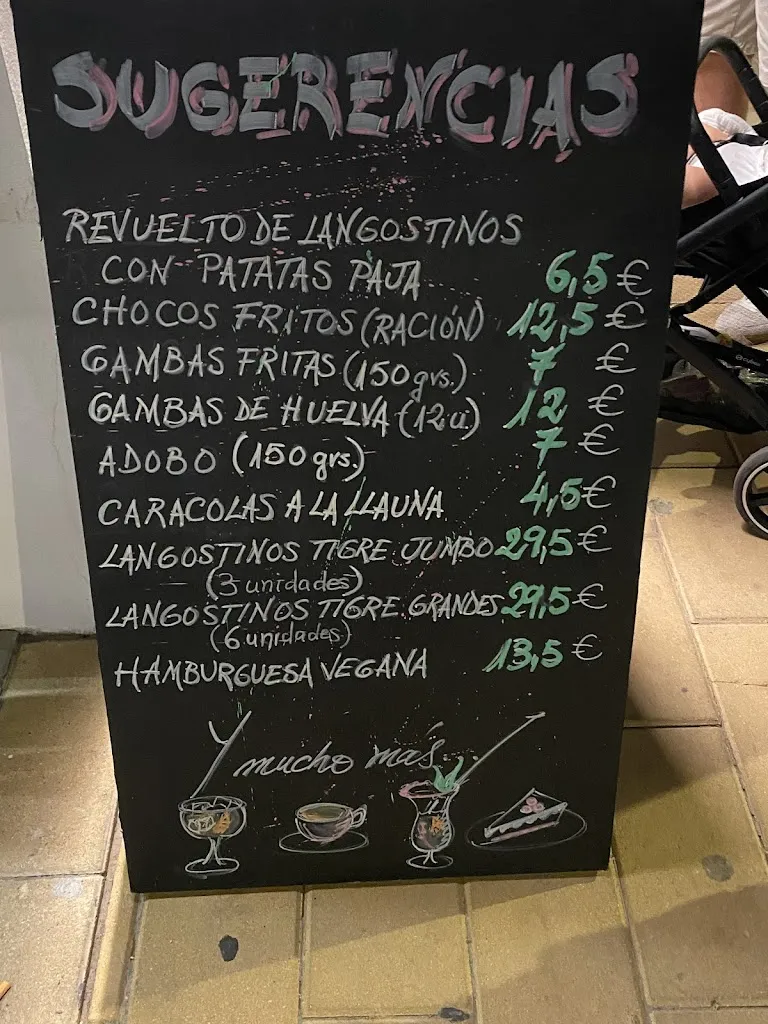 SUGERENCIAS
REVUELTO DE LANGOSTINOS
CON PATATAS PAJA 6,5 €
CHOCOS FRITOS (RACIÓN) 12,5 €
GAMBAS FRITAS (150 grs.) 7 €
GAMBAS DE HUELVA (12 u.) 12 €
ADOBO (150 grs.) 7 €
CARACOLAS A LA LLAUNA 4,5 €
LANGOSTINOS TIGRE JUMBO 29,5 €
(3 unidades)
LANGOSTINOS TIGRE GRANDES 29,5 €
(6 unidades)
HAMBURGUESA VEGANA 13,5 €
Y mucho más